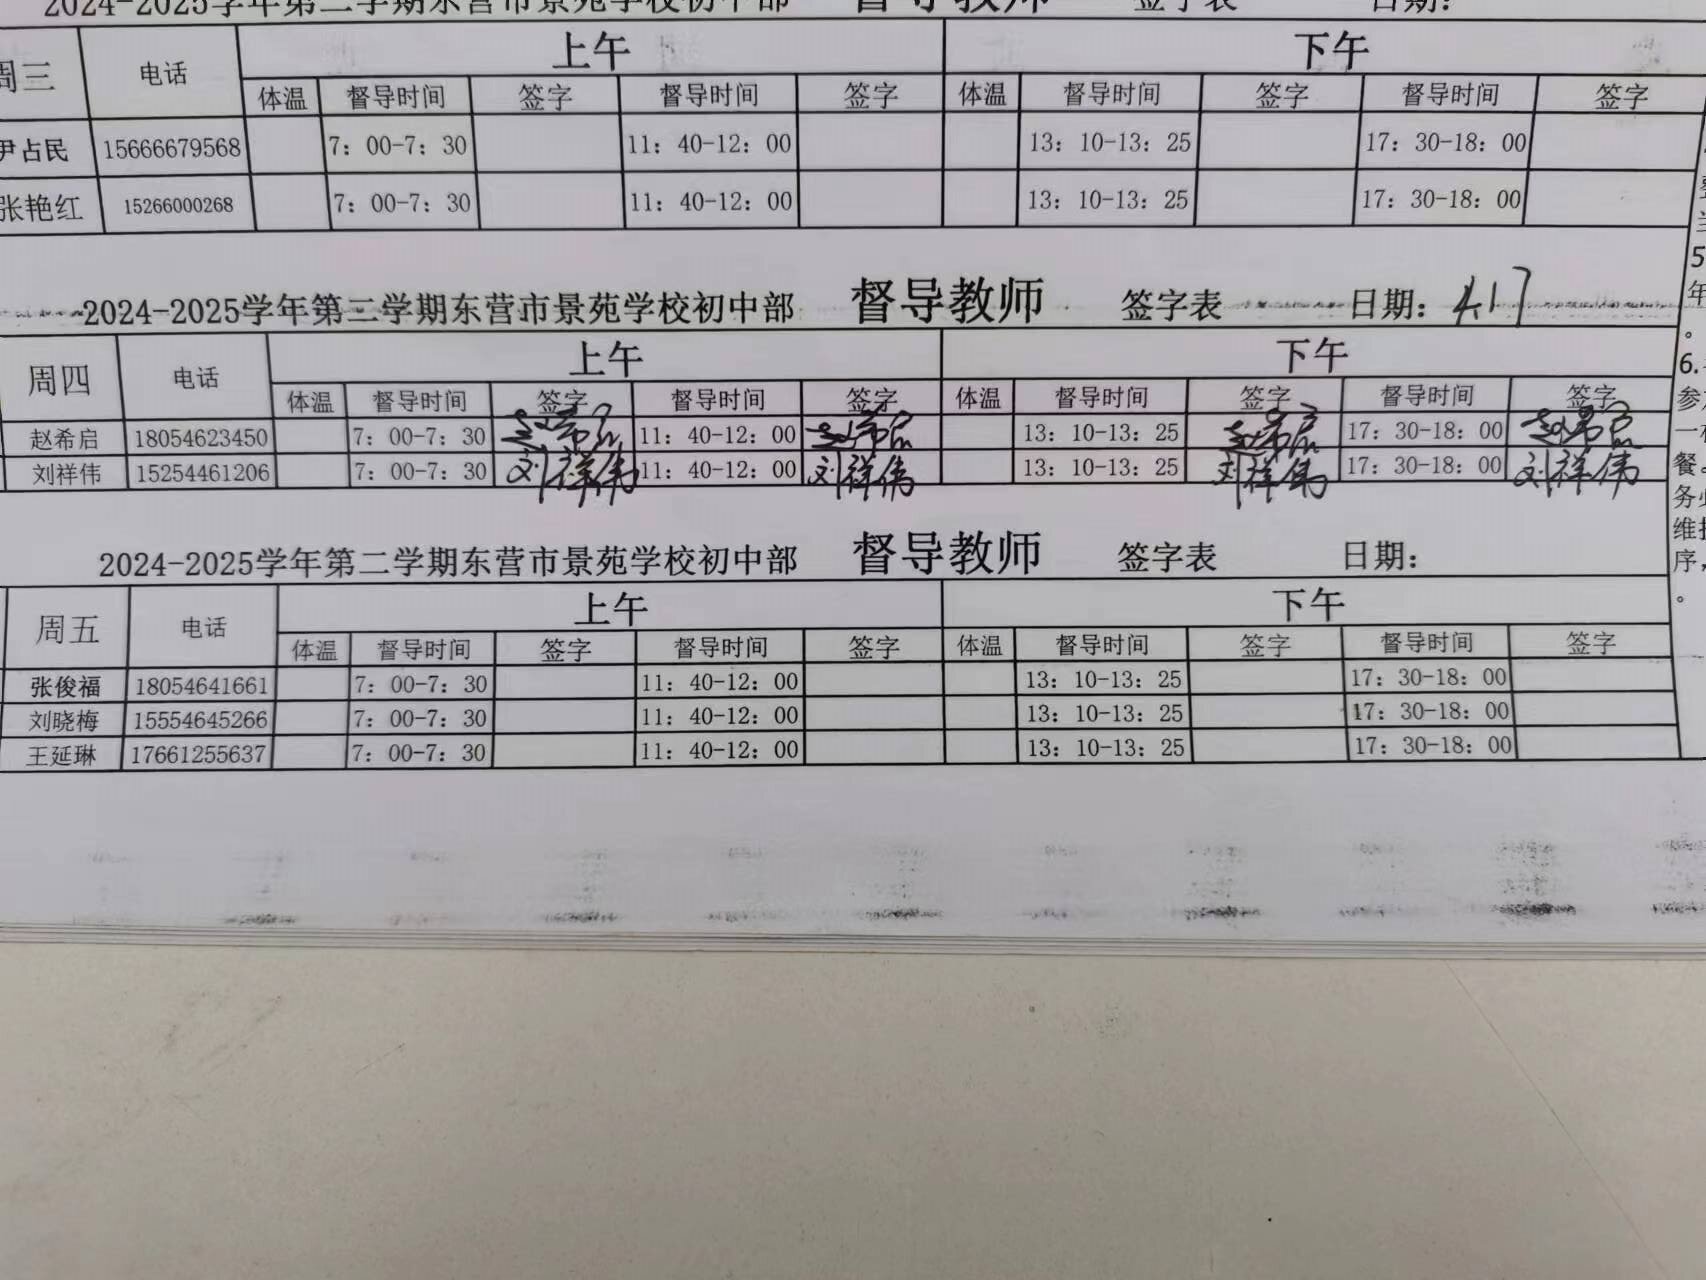 2024-2025学年第二学期东营市景苑学校初中部 督导教师 签字表 日期：
周三 电话 上午 下午
体温 督导时间 签字 督导时间 签字 体温 督导时间 签字 督导时间 签字
尹占民 15666679568 7：00-7：30 11：40-12：00 13：10-13：25 17：30-18：00
张艳红 15266000268 7：00-7：30 11：40-12：00 13：10-13：25 17：30-18：00
2024-2025学年第二学期东营市景苑学校初中部 督导教师 签字表 日期：4.17
周四 电话 上午 下午
体温 督导时间 签字 督导时间 签字 体温 督导时间 签字 督导时间 签字
赵希启 18054623450 7：00-7：30 赵希启 11：40-12：00 赵希启 13：10-13：25 赵希启 17：30-18：00 赵希启
刘祥伟 15254461206 7：00-7：30 刘祥伟 11：40-12：00 刘祥伟 13：10-13：25 刘祥伟 17：30-18：00 刘祥伟
2024-2025学年第二学期东营市景苑学校初中部 督导教师 签字表 日期：
周五 电话 上午 下午
体温 督导时间 签字 督导时间 签字 体温 督导时间 签字 督导时间 签字
张俊福 18054641661 7：00-7：30 11：40-12：00 13：10-13：25 17：30-18：00
刘晓梅 15554645266 7：00-7：30 11：40-12：00 13：10-13：25 17：30-18：00
王延琳 17661255637 7：00-7：30 11：40-12：00 13：10-13：25 17：30-18：00
5
年
。
6.
参
一
餐。
务
维
序，
。